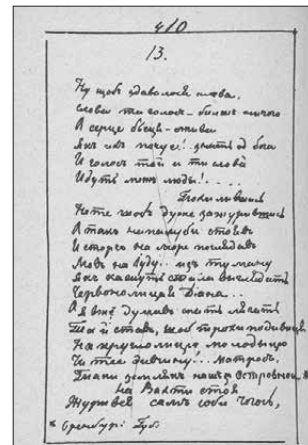 410
13.
Ну щобъ здавалося слова.
Слова та голосъ – билшъ ничого
А серце бьеця – ожива
Якъ ихъ почує! знать од бога
И голосъ той и ти слова
Идуть межъ люды! . . . .
Похилившись
Не те щобъ дуже зажурившись
А такъ на палуби стоявъ
И сторчъ на море поглядавъ
Мовъ на Іуду... изъ туману
Якъ кажуть стала выглядать
Червонолицая Діана...
А я вже думавъ спать лягать
Та й ставъ, щобъ трохи подивиця
На круглолицю молодыцю
Чи теє дивчину!... матросъ,
Таки землякъ нашъ з Островнои, *
На Вахти стоя
Журився самъ соби чогось,
* Оренбур: Губ: